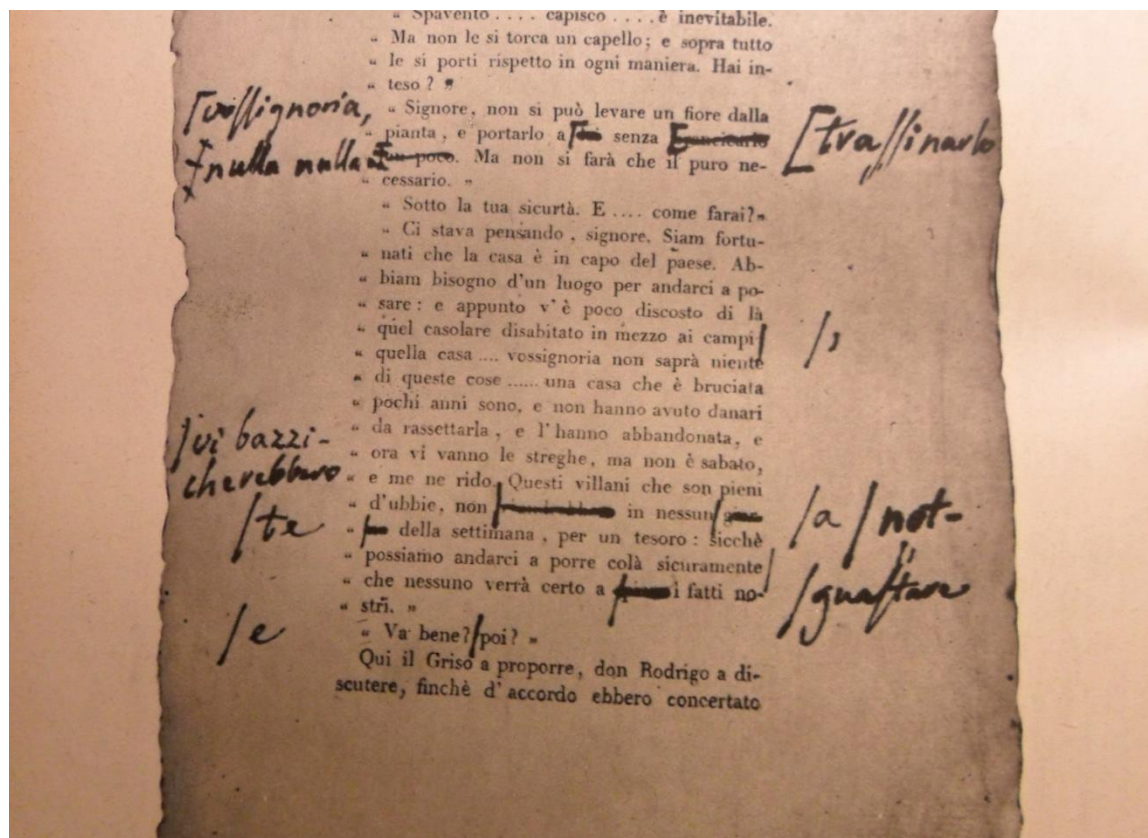 « Spavento .... capisco .... è inevitabile.
« Ma non le si torca un capello; e sopra tutto
« le si porti rispetto in ogni maniera. Hai in-
« teso? »
« Signore, non si può levare un fiore dalla
« pianta, e portarlo a senza brancicarlo
« un poco. Ma non si farà che il puro ne-
« cessario. »
« Sotto la tua sicurtà. E .... come farai? »
« Ci stava pensando, signore. Siam fortu-
« nati che la casa è in capo del paese. Ab-
« biam bisogno d'un luogo per andarci a po-
« sare: e appunto v'è poco discosto di là
« quel casolare disabitato in mezzo ai campi
« quella casa .... vossignoria non saprà niente
« di queste cose ...... una casa che è bruciata
« pochi anni sono, e non hanno avuto danari
« da rassettarla, e l'hanno abbandonata, e
« ora vi vanno le streghe, ma non è sabato,
« e me ne rido. Questi villani che son pieni
« d'ubbie, non in nessun gior-
« no della settimana, per un tesoro: sicchè
« possiamo andarci a porre colà sicuramente
« che nessuno verrà certo a i fatti no-
« stri. »
« Va bene? poi? »
Qui il Griso a proporre, don Rodrigo a di-
scutere, finchè d'accordo ebbero concertato
[vossignoria,
nulla nulla
vi bazzi-
cherebbero
/te
/e
[trassinarlo
/,
/a /not-
/guastare